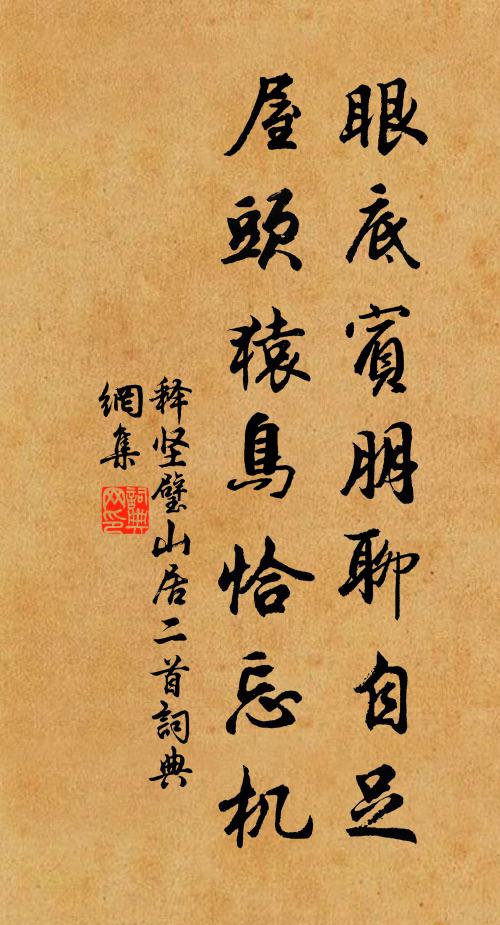 眼底賓朋聊自足
屋頭猿鳥恰忘机
释坚璧山居二首詞典
網集
詞典
网印